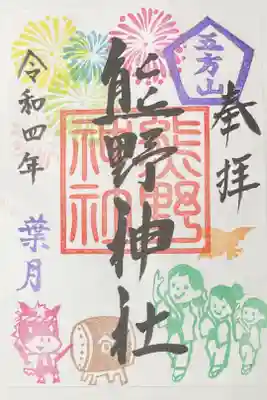 奉拝
五方山
熊野神社
熊野
神社
令和四年
葉月